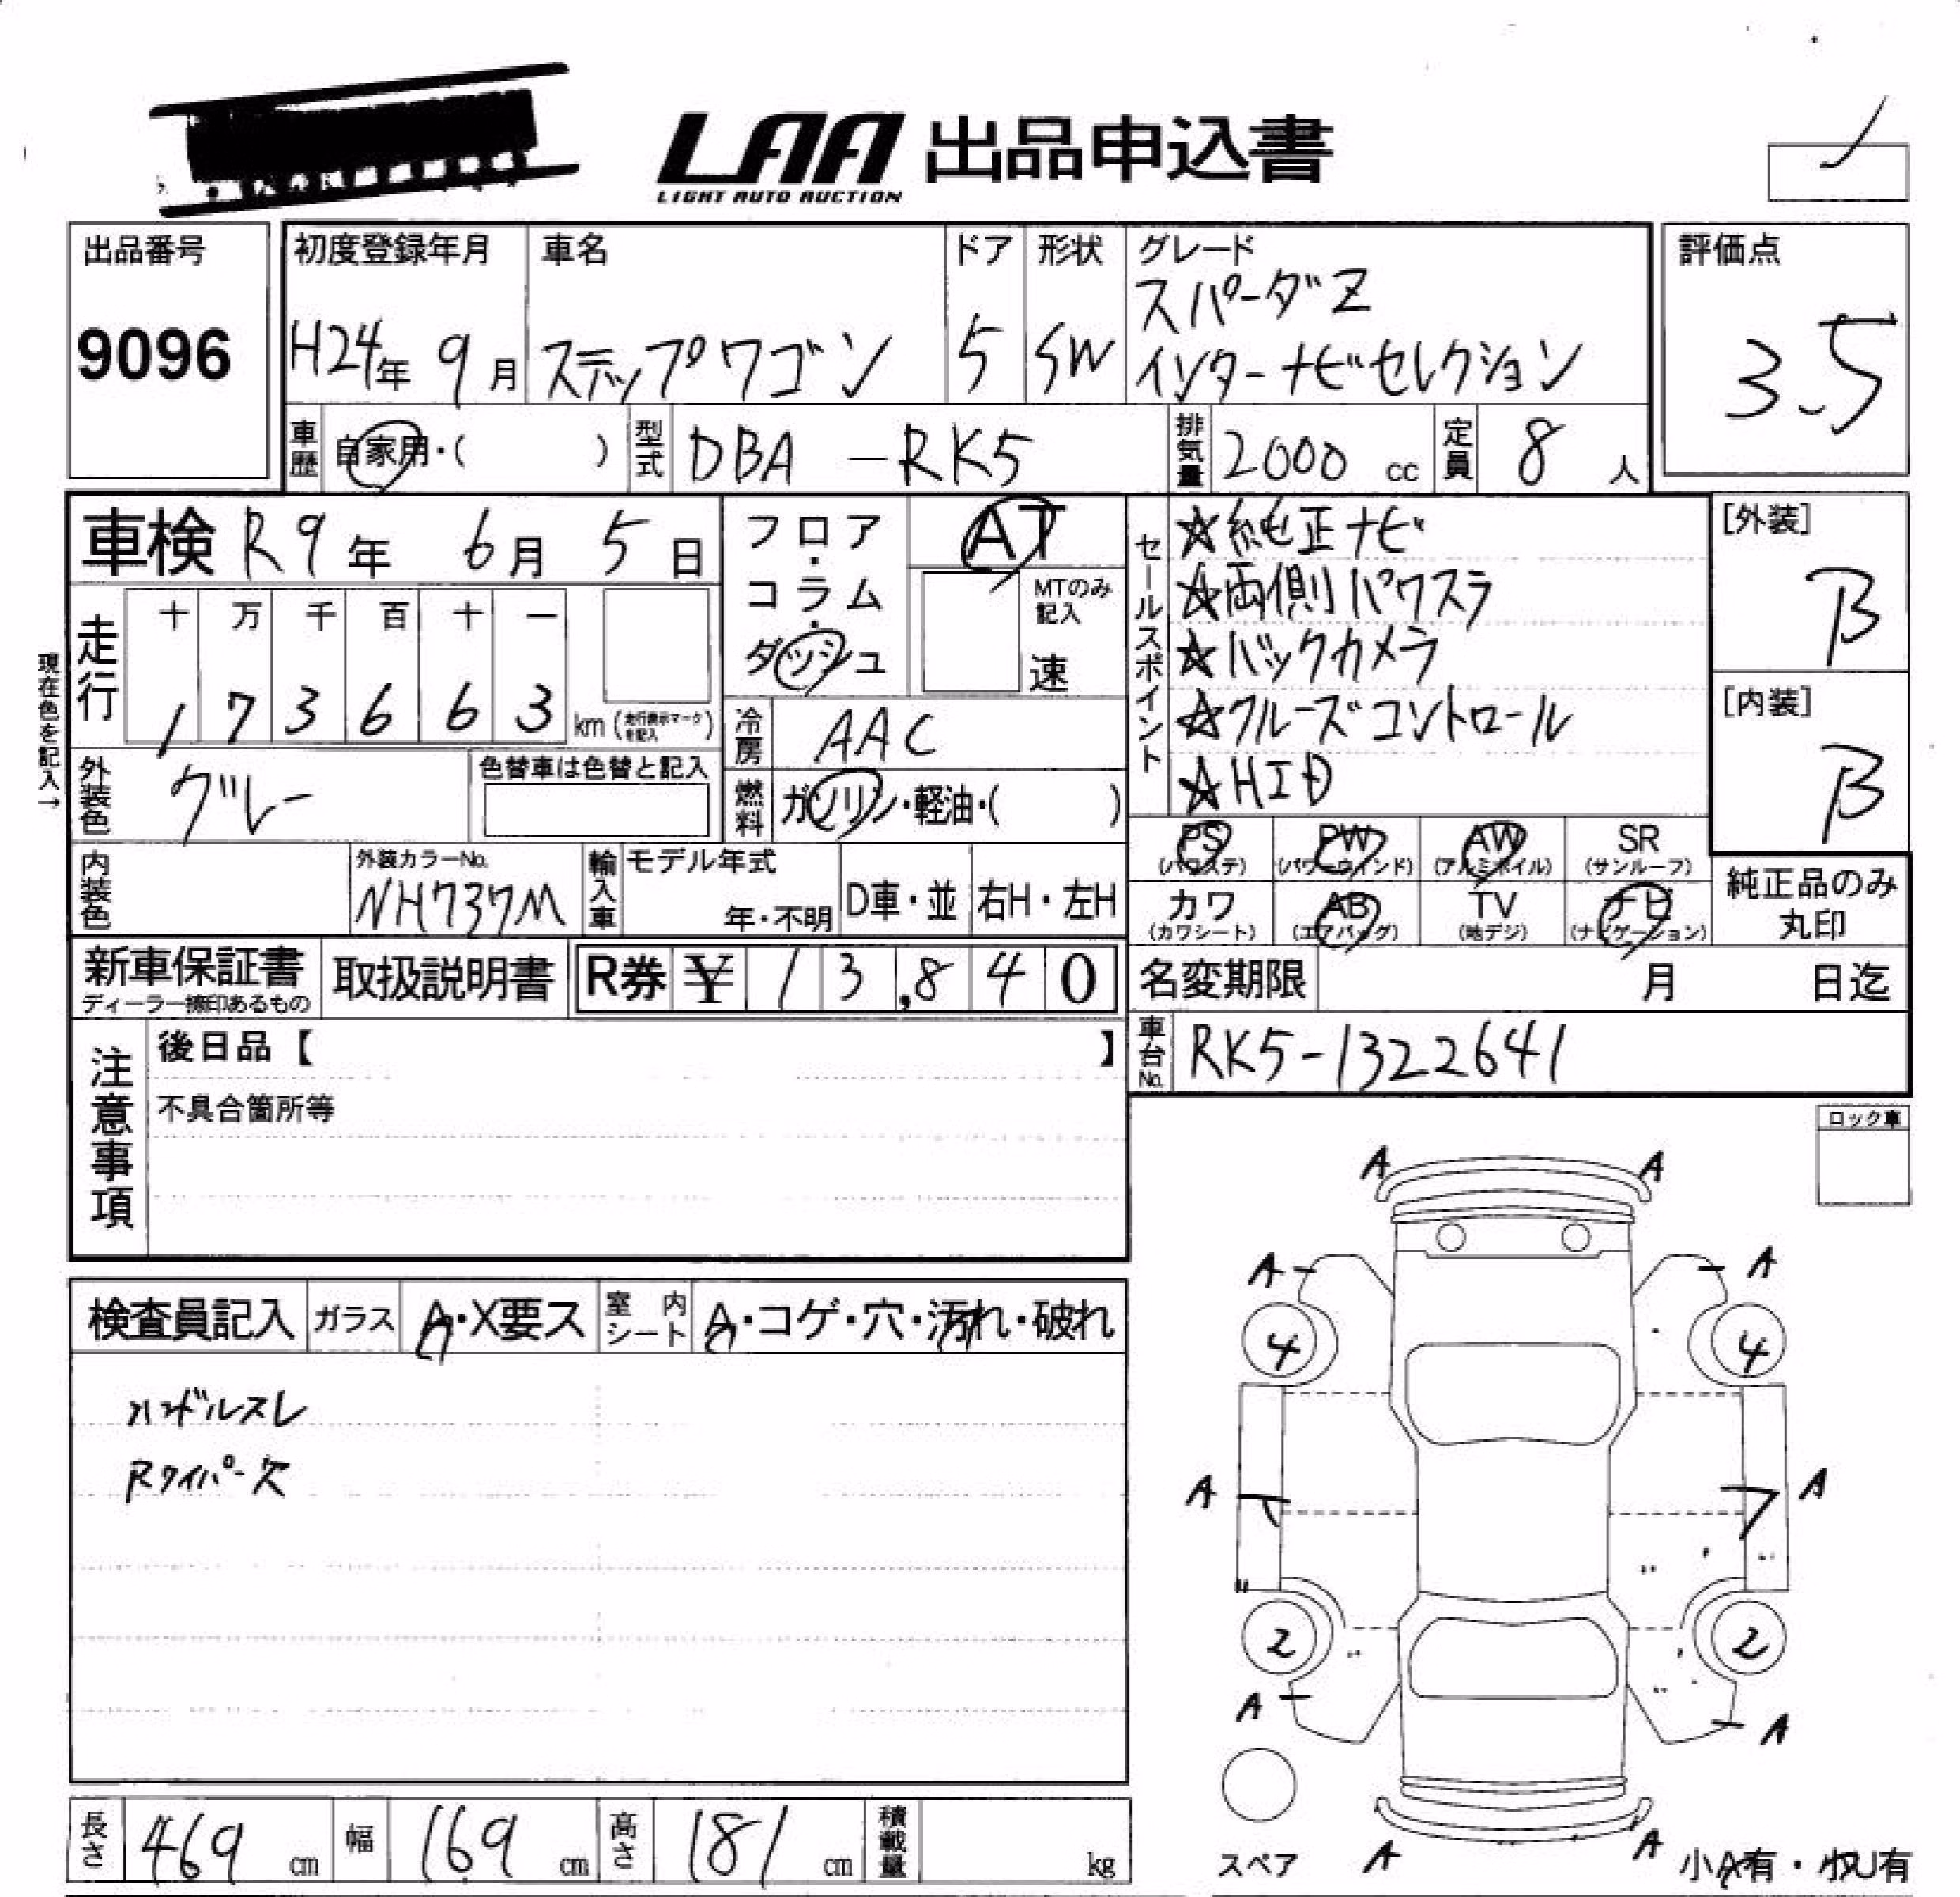 LAA 出品申込書
LIGHT AUTO AUCTION
出品番号
9096
初度登録年月
H24年 9月
車名
ステップワゴン
ドア
5
形状
SW
グレード
スパーダZ
インターナビセレクション
評価点
3.5
車歴 自家用・( )
型式 DBA-RK5
排気量 2000 cc
定員 8 人
車検 R9年 6月 5日
フロア・コラム・ダッシュ
AT
MTのみ記入
速
セールスポイント
☆純正ナビ
☆両側パワスラ
☆バックカメラ
☆クルーズコントロール
☆HID
[外装]
B
[内装]
B
現在色を記入→
走行
十 万 千 百 十 一
1 7 3 6 6 3 km (走行表示マークを記入)
冷房 AAC
外装色 グレー
色替車は色替と記入
燃料 ガソリン・軽油・( )
PS (パワステ) PW (パワーウィンド) AW (アルミホイル) SR (サンルーフ)
カワ (カワシート) AB (エアバッグ) TV (地デジ) ナビ (ナビゲーション)
純正品のみ丸印
内装色
外装カラーNo.
NH737M
輸入車 モデル年式
年・不明
D車・並 右H・左H
新車保証書
ディーラー捺印あるもの
取扱説明書
R券 ¥ 13,840
名変期限 月 日迄
車台No. RK5-1322641
注意事項
後日品【 】
不具合箇所等
ロック車
検査員記入 ガラス A・X要ス 室内シート A・コゲ・穴・汚れ・破れ
ハンドルスレ
Rワイパー欠
A A
A A
4 4
A A
2 2
A A
スペア
A A
小A有・小U有
長さ 469 cm 幅 169 cm 高さ 181 cm 積載量 kg